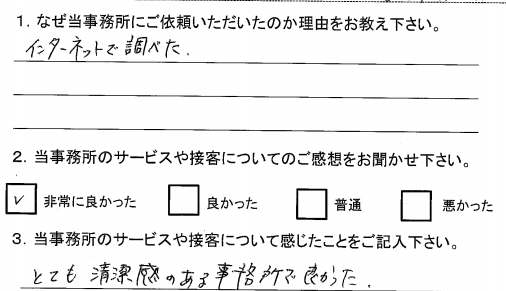 1. なぜ当事務所にご依頼いただいたのか理由をお教え下さい。
インターネットで調べた.
2. 当事務所のサービスや接客についてのご感想をお聞かせ下さい。
✓ 非常に良かった 良かった 普通 悪かった
3. 当事務所のサービスや接客について感じたことをご記入下さい。
とても清潔感のある事務所で良かった.